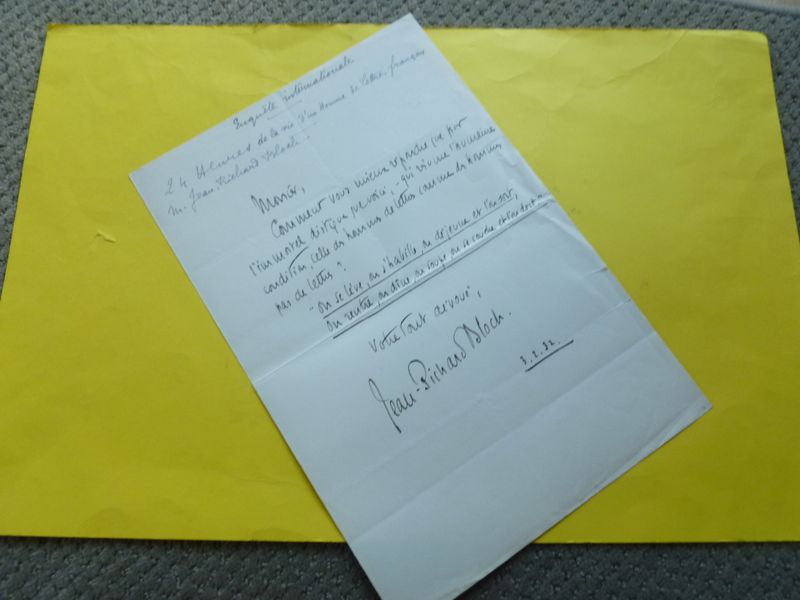 Enquête internationale
24 Heures de la vie d'un Homme de lettres français
M. Jean-Richard Bloch.
Monsieur,
Comment vous mieux répondre que par
l'immortel distique que voici, qui résume l'humaine
condition, celle des hommes de lettres comme des hommes
pas de lettres ?
- On se lève, on s'habille, on déjeune et l'on sort,
On rentre, on dîne, on soupe, on se couche et l'on dort.
Votre tout dévoué,
Jean-Richard Bloch.
3.2.32.